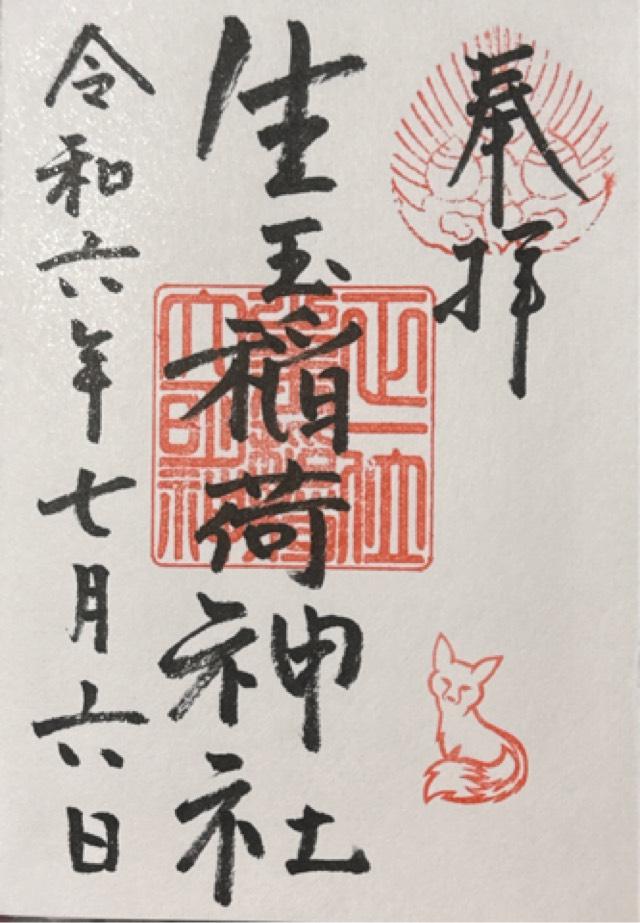 奉拝
生玉稲荷神社
令和六年七月六日